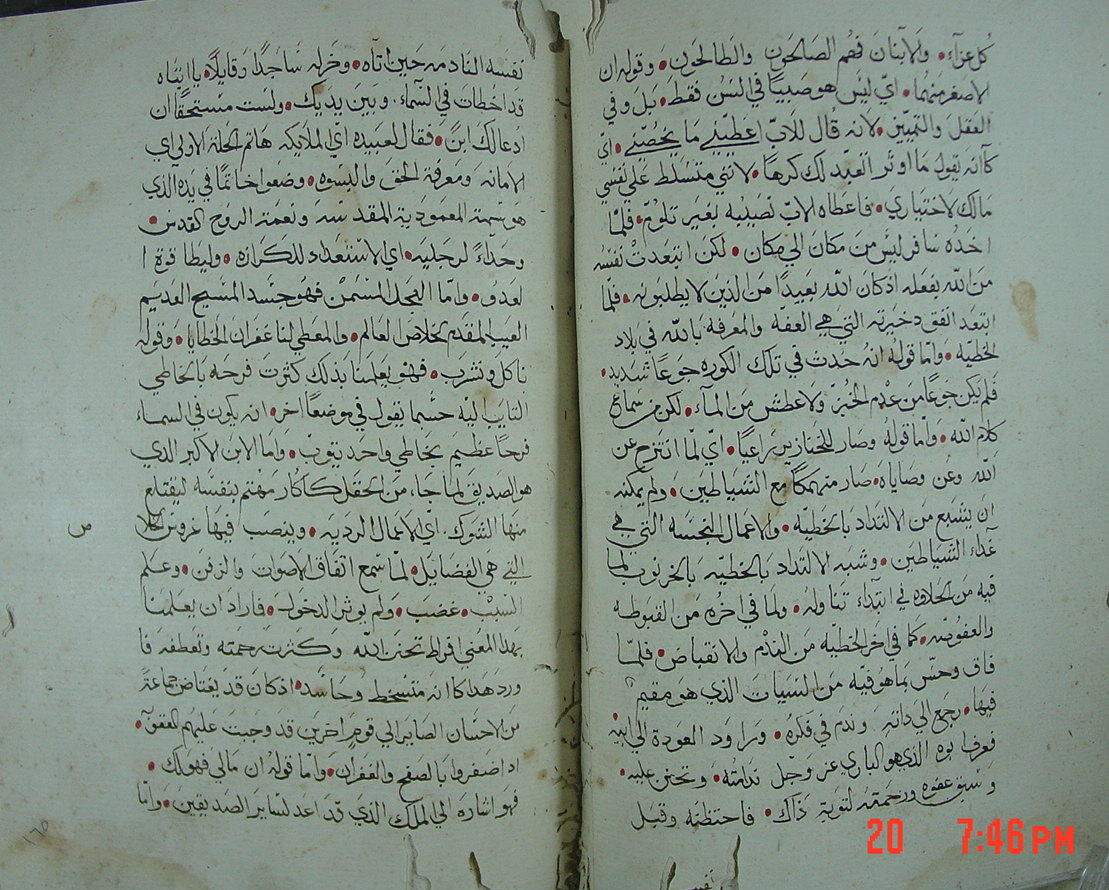 كل عزاء. والابنان فهم الصالحون والطالحون. وقوله ان
الاصغر منهما. اي ليس هو صبيًا في السن فقط. بل وفي
العقل والتمييز. لانه قال للاب اعطيني ما يخصني. اي
كأنه يقول ما اوثر العبد لك كرهًا. لانني متسلط على نفسي
مالك لاختياري. فاعطاه الاب نصيبه بغير تلوم. فلما
اخذه سافر ليس من مكان الي مكان. لكن ابتعدت نفسه
من الله بفعله اذ كان الله بعيدًا من الذين لا يطلبونه. فلما
ابتعد انفق دخيرته التي هي العفه والمعرفه بالله في بلاد
الخطيه. واما قوله انه حدث في تلك الكوره جوعًا شديد.
فلم يكن جوعًا من عدم الخبز ولا عطش من الماء. لكن من سماع
كلام الله. واما قوله وصار للخنازير راعيًا. اي لما انتزح عن
الله وعن وصاياه صار منهمكًا مع الشياطين. ولم يمكنه
ان يشبع من الالتداد بالخطيه. والاعمال النجسه التي هي
غداء الشياطين. وشبه الالتداد بالخطيه بالخرنوب لما
فيه من الحلاوه في ابتداء تناوله. ولما في اخره من القبوطه
والعفوصه. كما في اخر الخطيه من الندم والانقباض. فلما
فاق وحس بما هو فيه من السيات الذي هو مقيم
فيها. رجع الي داته وندم في فكره. وراود العودة الي ابيه
فعرف ابوه الذي هو الباري عز وجل ندامته. وتحنن عليه.
وسبق عفوه ورحمته لتوبة ذاك. فاحتظنه وقبل
نفسه
نفسه النادمه حين اتاه. وخر له ساجدًا وقايلًا يا ابتاه
قد اخطات في السماء وبين يديك. ولست مستحقًا ان
ادعا لك ابنً. فقال لعبيده اي الملايكه هاتم الحلة الاولي اي
الامانه ومعرفة الحق والبسوه. وضعوا خاتمًا في يده الذي
هو سمة المعمودية المقدسه ونعمة الروح القدس.
وحداءً لرجليه. اي الاستعداد للكرازه. وليطا قوة ا
لعدو. واما العجل المسمن فهو جسد المسيح العديم
العيب المقدم لخلاص العالم. والمعطي لنا غفران الخطايا. وقوله
ناكل ونشرب. فهو يعلمنا بذلك كثرت فرحه بالخاطي
التايب اليه حسبما يقول في موضعًا اخر. انه يكون في السماء
فرحًا عظيم بخاطي واحد يتوب. واما الابن الاكبر الذي
هو الصديق لما جاء من الحقل كأكار مهتم بنفسه ليقتلع
منها الشوك. اي الاعمال الرديه. وينصب فيها غروس
ص
التي هي الفضايل. لما سمع اتفاق الاصوات والزفن. وعلم
السبب. غضب. ولم يوثر الدخول. فاراد ان يعلمنا
بهدا المعني افراط تحنن الله وكثرت رحمته وتعطفه فا
ورد هدا كانه متسخط وحاسد. اد كان قد يغتاض جماعة
من الاحسان الصاير الي قوم اخرين قد وجبت عليهم العقوبه.
اد اضفروا بالصفح والغفران. واما قوله ان مالي فهو لك.
فهو اشاره الي الملك الذي قد اعد لساير الصديقين. واما
20 7:46 PM